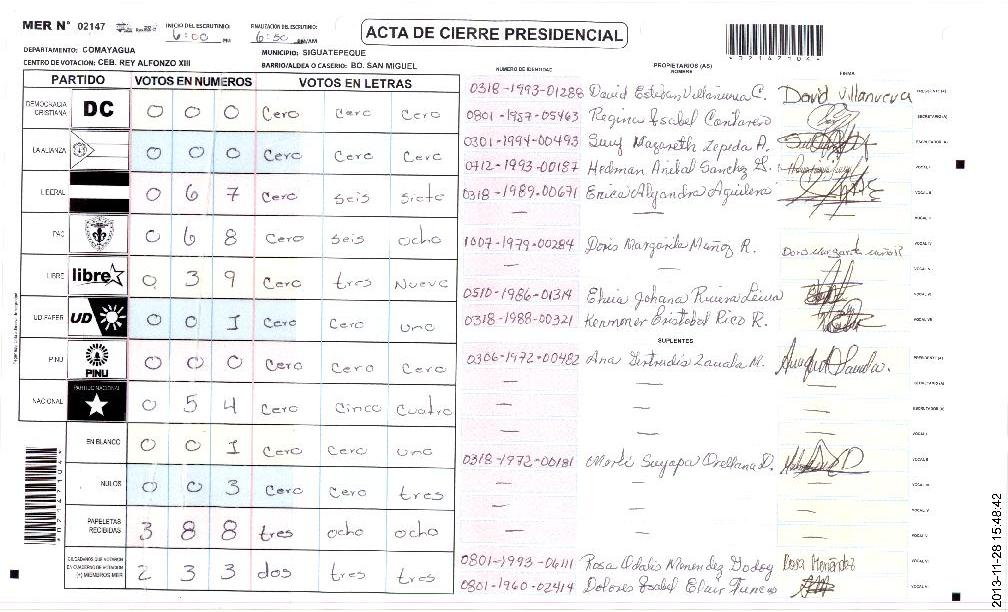 MER N° 02147
INICIO DEL ESCRUTINIO: 6:00 PM
FINALIZACIÓN DEL ESCRUTINIO: 6:50 PM/AM
ACTA DE CIERRE PRESIDENCIAL
DEPARTAMENTO: COMAYAGUA
MUNICIPIO: SIGUATEPEQUE
CENTRO DE VOTACION: CEB. REY ALFONZO XIII
BARRIO/ALDEA O CASERIO: BO. SAN MIGUEL
PARTIDO VOTOS EN NUMEROS VOTOS EN LETRAS
NUMERO DE IDENTIDAD PROPIETARIOS (AS) NOMBRE FIRMA
DEMOCRACIA CRISTIANA DC 0 0 0 Cero Cero Cero
LA ALIANZA 0 0 0 Cero Cero Cero
LIBERAL 0 6 7 Cero seis siete
PAC 0 6 8 Cero seis ocho
LIBRE libre 0 3 9 Cero tres Nueve
UD FAPER UD 0 0 1 Cero Cero uno
PINU PINU 0 0 0 Cero Cero Cero
NACIONAL PARTIDO NACIONAL 0 5 4 Cero Cinco Cuatro
EN BLANCO 0 0 1 Cero Cero uno
NULOS 0 0 3 Cero Cero tres
PAPELETAS RECIBIDAS 3 8 8 tres ocho ocho
CIUDADANOS QUE VOTARON EN CUADERNO DE VOTACION (+) MIEMBROS MER 2 3 3 dos tres tres
0318-1993-01288 David Esteban Villanueva C. David Villanueva PRESIDENTE (A)
0801-1957-05463 Regina Isabel SECRETARIO (A)
0301-1994-00493 Suny Nazareth Zepeda A. ESCRUTADOR (A)
0712-1993-00187 Hedman Anibal Sanchez G. VOCAL I
0318-1989-00671 Erica Alejandra Aguilera VOCAL II
— — VOCAL III
1007-1979-00284 Doris Margarita Muñoz R. Doris Margarita Muñoz R VOCAL IV
— — VOCAL V
0510-1986-01314 Johana Rivera VOCAL VI
0318-1988-00321 Cristobal Rico R. VOCAL VII
SUPLENTES
0306-1972-00482 Ana Gertrudis Zavala M. PRESIDENTE (A)
— — — SECRETARIO (A)
— — — ESCRUTADOR (A)
— — — VOCAL I
0318-1972-00181 Suyapa Orellana D. VOCAL II
— — — VOCAL III
— — — VOCAL IV
— — — VOCAL V
0801-1993-06111 Rosa Odalis Menendez Godoy Rosa Menéndez VOCAL VI
0801-1960-02414 Dolores Isabel Funes VOCAL VII
2013-11-28 15:48:42